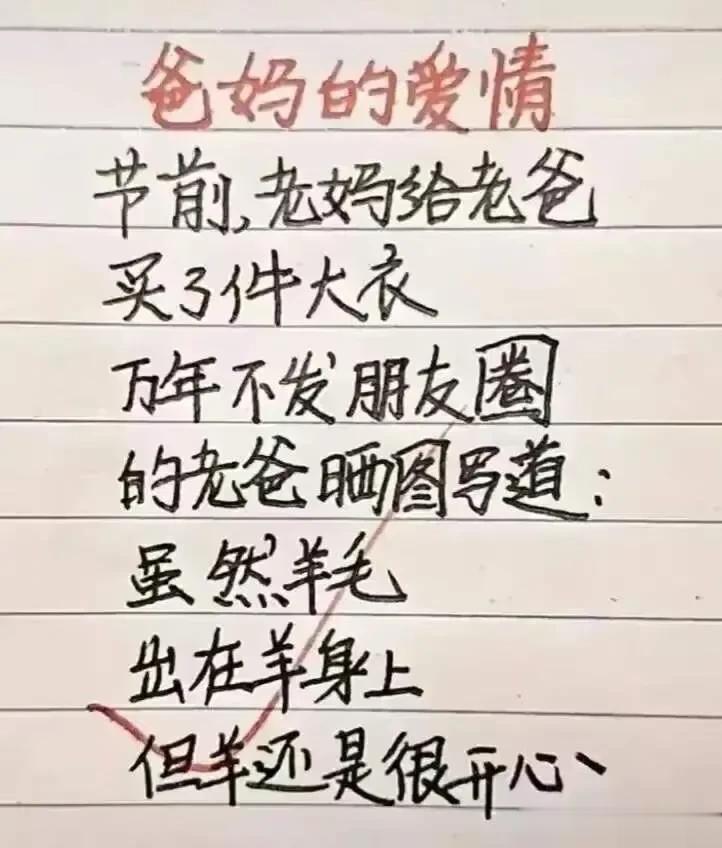 爸妈的爱情
节前,老妈给老爸
买了件大衣
万年不发朋友圈
的老爸晒图写道:
虽然羊毛
出在羊身上
但羊还是很开心、